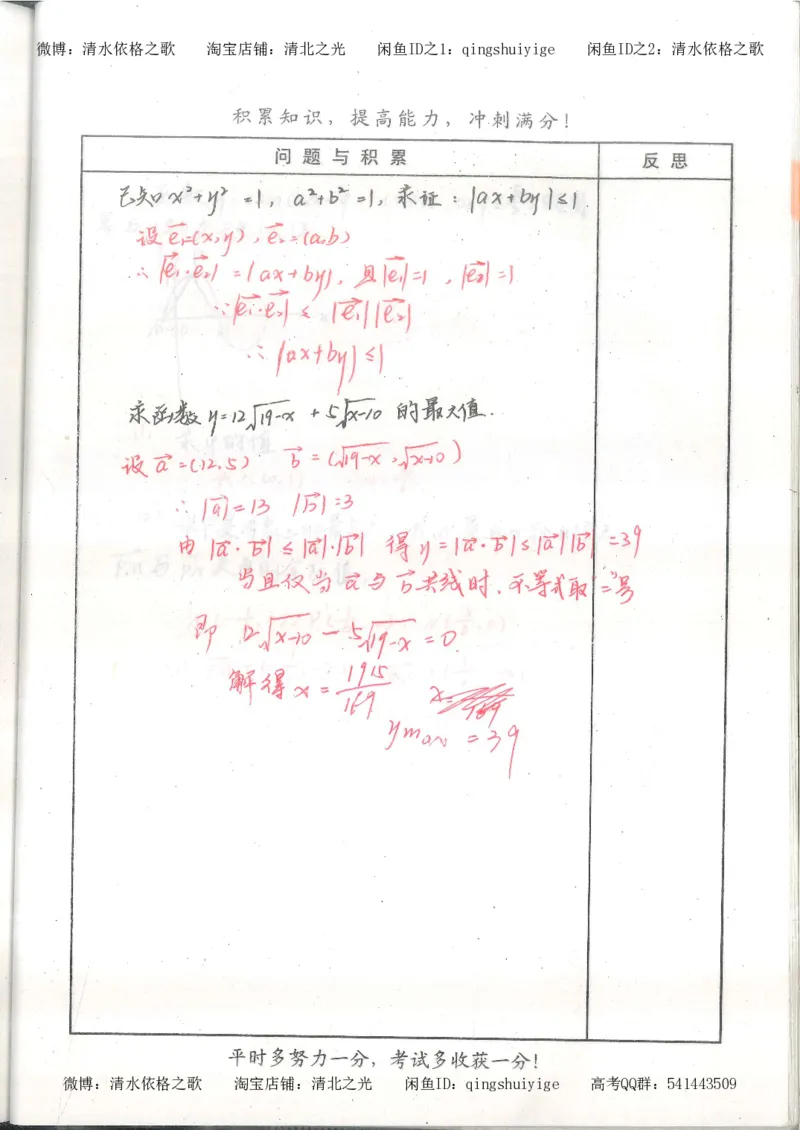 微博：清水依格之歌 淘宝店铺：清北之光 闲鱼ID之1：qingshuiyige 闲鱼ID之2：清水依格之歌
积累知识，提高能力，冲刺满分！
问题与积累 反思
已知x²+y²=1，a²+b²=1，求证：|ax+by|≤1.
设e₁=(x,y)，e₂=(a,b)
∴|e₁·e₂|=|ax+by|，且|e₁|=1，|e₂|=1
∵|e₁·e₂|≤|e₁||e₂|
∴|ax+by|≤1
求函数y=12√19-x+5√x-10的最大值.
设a=(12,5) b=(√19-x,√x-10)
∴|a|=13 |b|=3
由|a·b|≤|a|·|b| 得y=|a·b|≤|a||b|=39
当且仅当a与b共线时，不等式取"="号
即 12√x-10-5√19-x=0.
解得x=1915/169
ymax=39
平时多努力一分，考试多收获一分！
微博：清水依格之歌 淘宝店铺：清北之光 闲鱼ID：qingshuiyige 高考QQ群：541443509